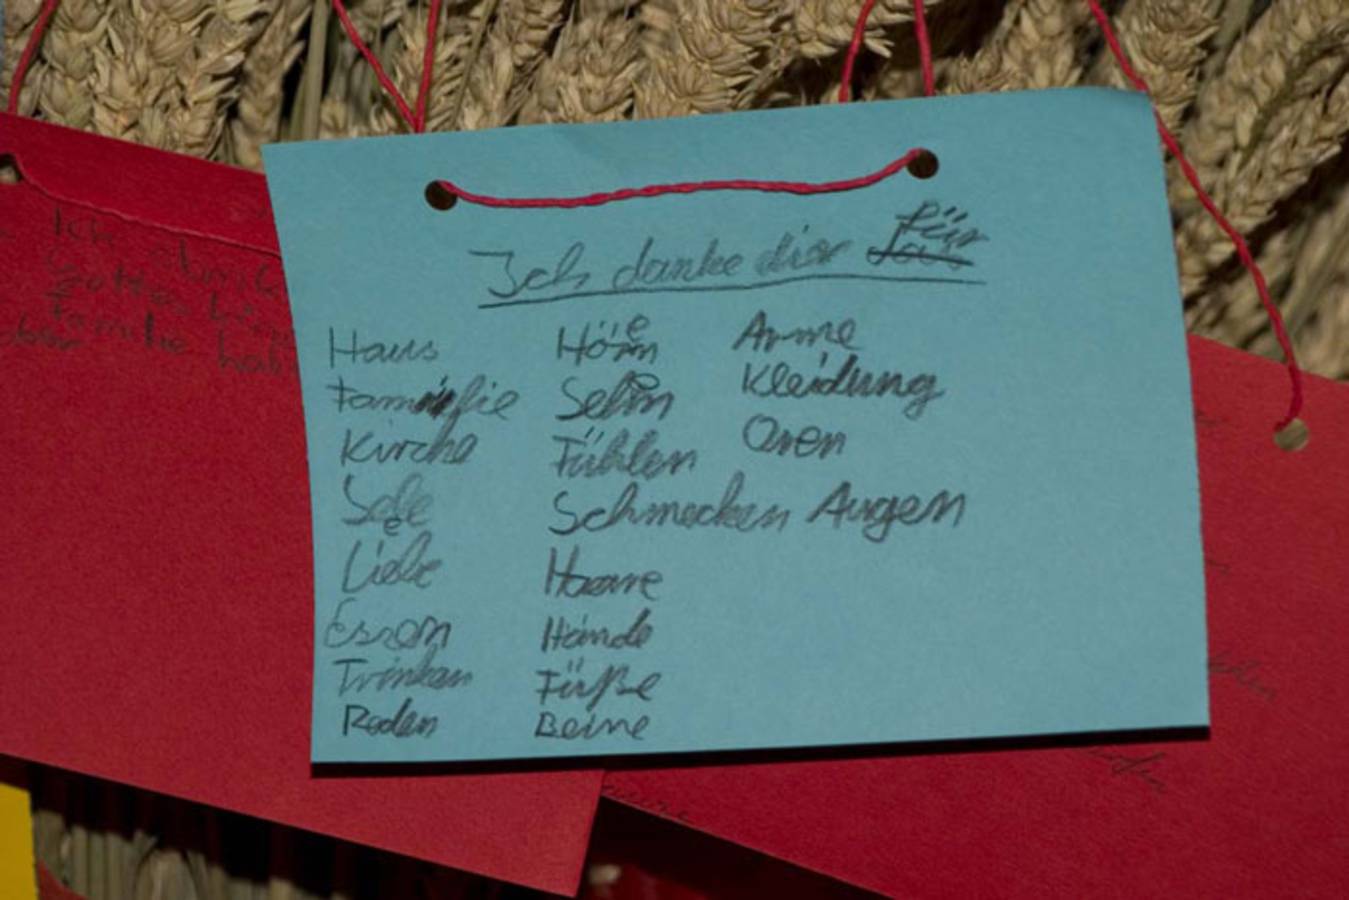 Ich danke dir für
Haus
Familie
Kirche
Sele
Liebe
Essen
Trinken
Reden
Hören
Sehen
Fühlen
Schmecken
Haare
Hände
Füße
Beine
Arme
Kleidung
Oren
Augen
Ich
Gottes
Familie hab